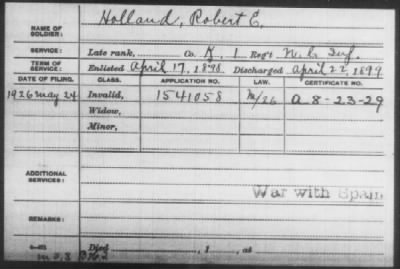 NAME OF SOLDIER: Holland, Robert E.
SERVICE: Late rank, Co. K, 1 Reg't N.C. Inf.
TERM OF SERVICE: Enlisted April 17, 1898 Discharged April 22, 1899
DATE OF FILING. CLASS. APPLICATION NO. LAW. CERTIFICATE NO.
1926 May 24 Invalid, 1541058 A 8-23-29
Widow,
Minor,
ADDITIONAL SERVICES:
War with Spain
REMARKS:
Died , 1 , at